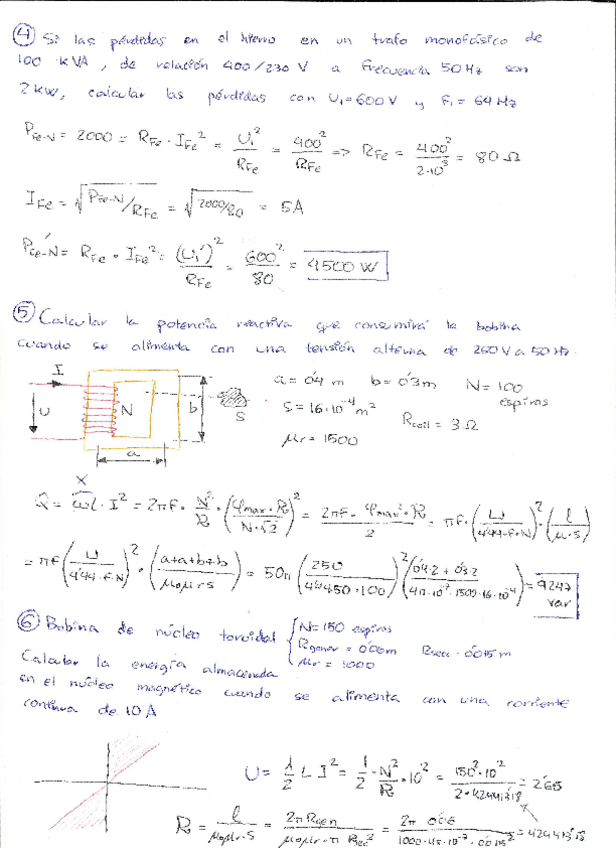 4 Si las pérdidas en el hierro en un trafo monofásico de
100 kVA, de relación 400/230 V a frecuencia 50 Hz son
2 kW, calcular las pérdidas con U₁=600 V y F₁= 64 Hz
P_Fe-N = 2000 = R_Fe · I_Fe² = U₁²/R_Fe = 400²/R_Fe => R_Fe = 400²/2·10³ = 80 Ω
I_Fe = √(P_Fe-N/R_Fe) = √(2000/80) = 5A
P_Fe-N' = R_Fe · I_Fe² = (U₁')²/R_Fe = 600²/80 = 4500 W
5 Calcular la potencia reactiva que consumirá la bobina
cuando se alimenta con una tensión alterna de 250 V a 50 Hz.
I
U N b S
a
a = 0'4 m b = 0'3 m N = 100 espiras
S = 16·10⁻⁴ m² R_coil = 3 Ω
μr = 1500
X
Q = ωL · I² = 2πF · N²/R · (φmax·R/N·√2)² = 2πF · φmax²·R/2 = πF·(U/4'44·F·N)²·(l/μ·S)
= πF(U/4'44·F·N)²·(a+a+b+b/μoμrS) = 50π(250/4'44·50·100)²(0'4·2+0'3·2/4π·10⁻⁷·1500·16·10⁻⁴) = 9247 var
6 Bobina de núcleo toroidal { N=150 espiras
Rgener = 0'06 m Rsecc = 0'015 m
μr = 1000
Calcular la energía almacenada
en el núcleo magnético cuando se alimenta con una corriente
continua de 10 A
U = 1/2 L I² = 1/2 · N²/R · 10² = 150²·10²/2·424413'18 = 2'65
R = l/μoμr·S = 2πRgen/μoμr·πRsec² = 2π 0'06/1000·4π·10⁻⁷·π·0'015² = 424413'18